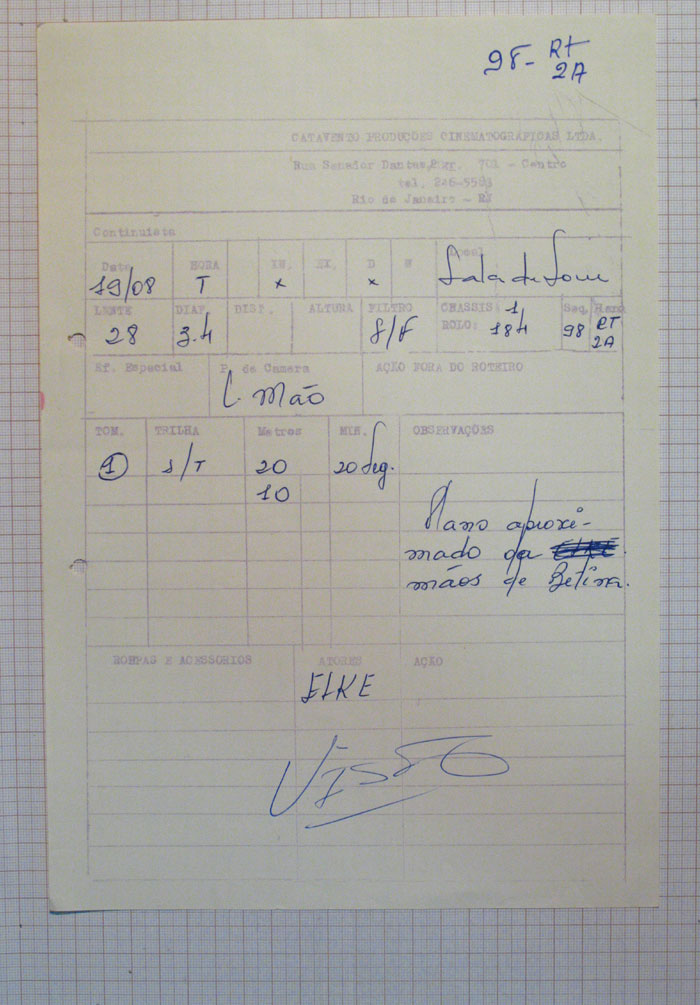 98- RT
2A
CATAVENTO PRODUÇOES CINEMATOGRÁFICAS LTDA.
Rua Senador Dantas, 701 - Centro
tel. 226-5593
Rio de Janeiro - RJ
Continuista
Data HORA IN. EX. D N Local
19/08 T x x Sala de Som
LENTE DIAF. DIST. ALTURA FILTRO CHASSIS 1 Seq. Rem.
28 3.4 S/F ROLO: 184 98 RT
2A
Ef. Especial P. de Camera AÇÃO FORA DO ROTEIRO
C. Mão
TOM. TRILHA Metros MIN. OBSERVAÇÕES
1 S/T 20 20 Seg.
10
Plano aproxi-
mado da
mãos de Betina.
ROUPAS E ACESSORIOS ATORES AÇÃO
ELKE
VISTO